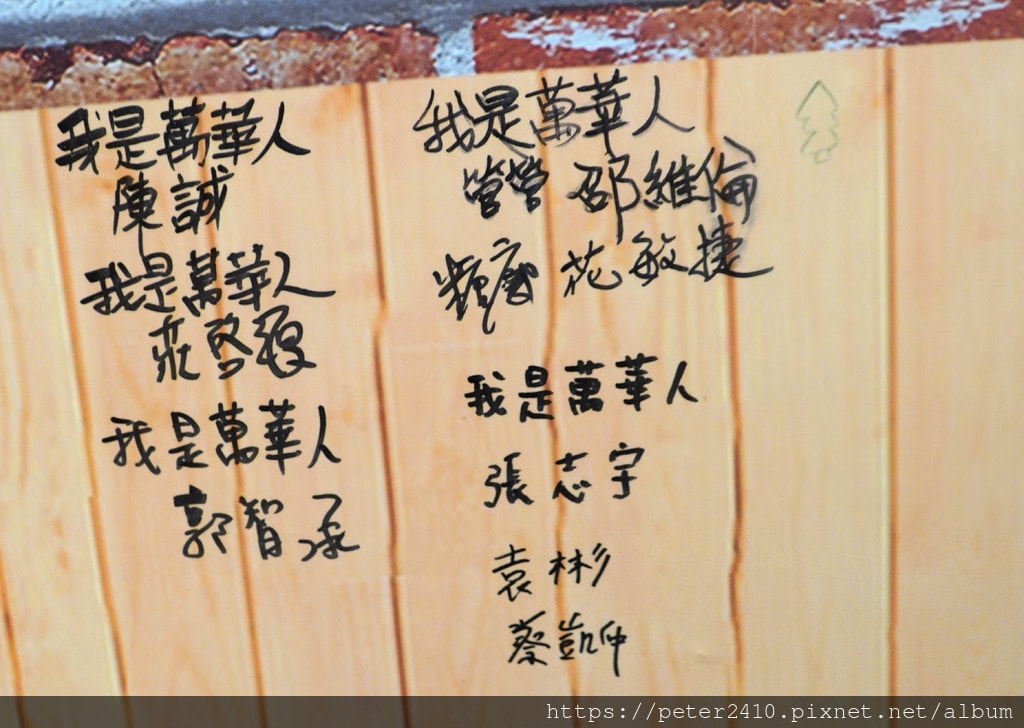 我是萬華人
陳誠
我是萬華人
莊啓
我是萬華人
郭智承
我是萬華人
營營 邵維倫
花敏捷
我是萬華人
張志宇
袁彬
蔡凱仲
https://peter2410.pixnet.net/album